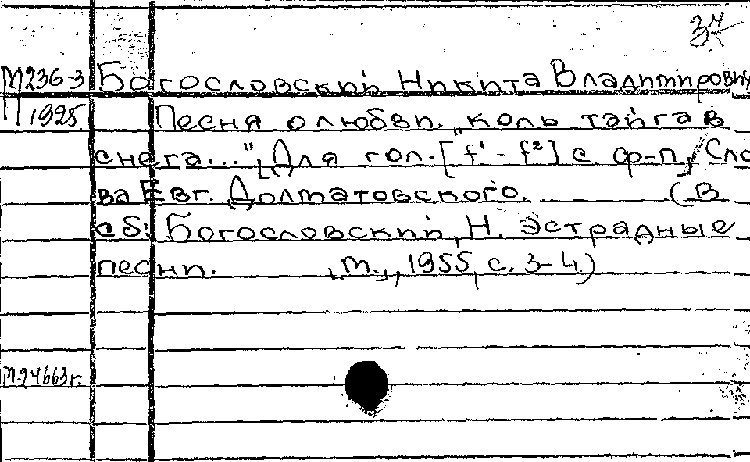 37
М236-3 Богословский Никита Владимирович
П 1925 Песня о любви. „Коль тайга в
снега...". Для гол. [f¹ - f²] с ф-п. Сло
ва Евг. Долматовского. (В
сб: Богословский, Н. Эстрадные
песни. М., 1955, с. 3-4.)
М-24663г.